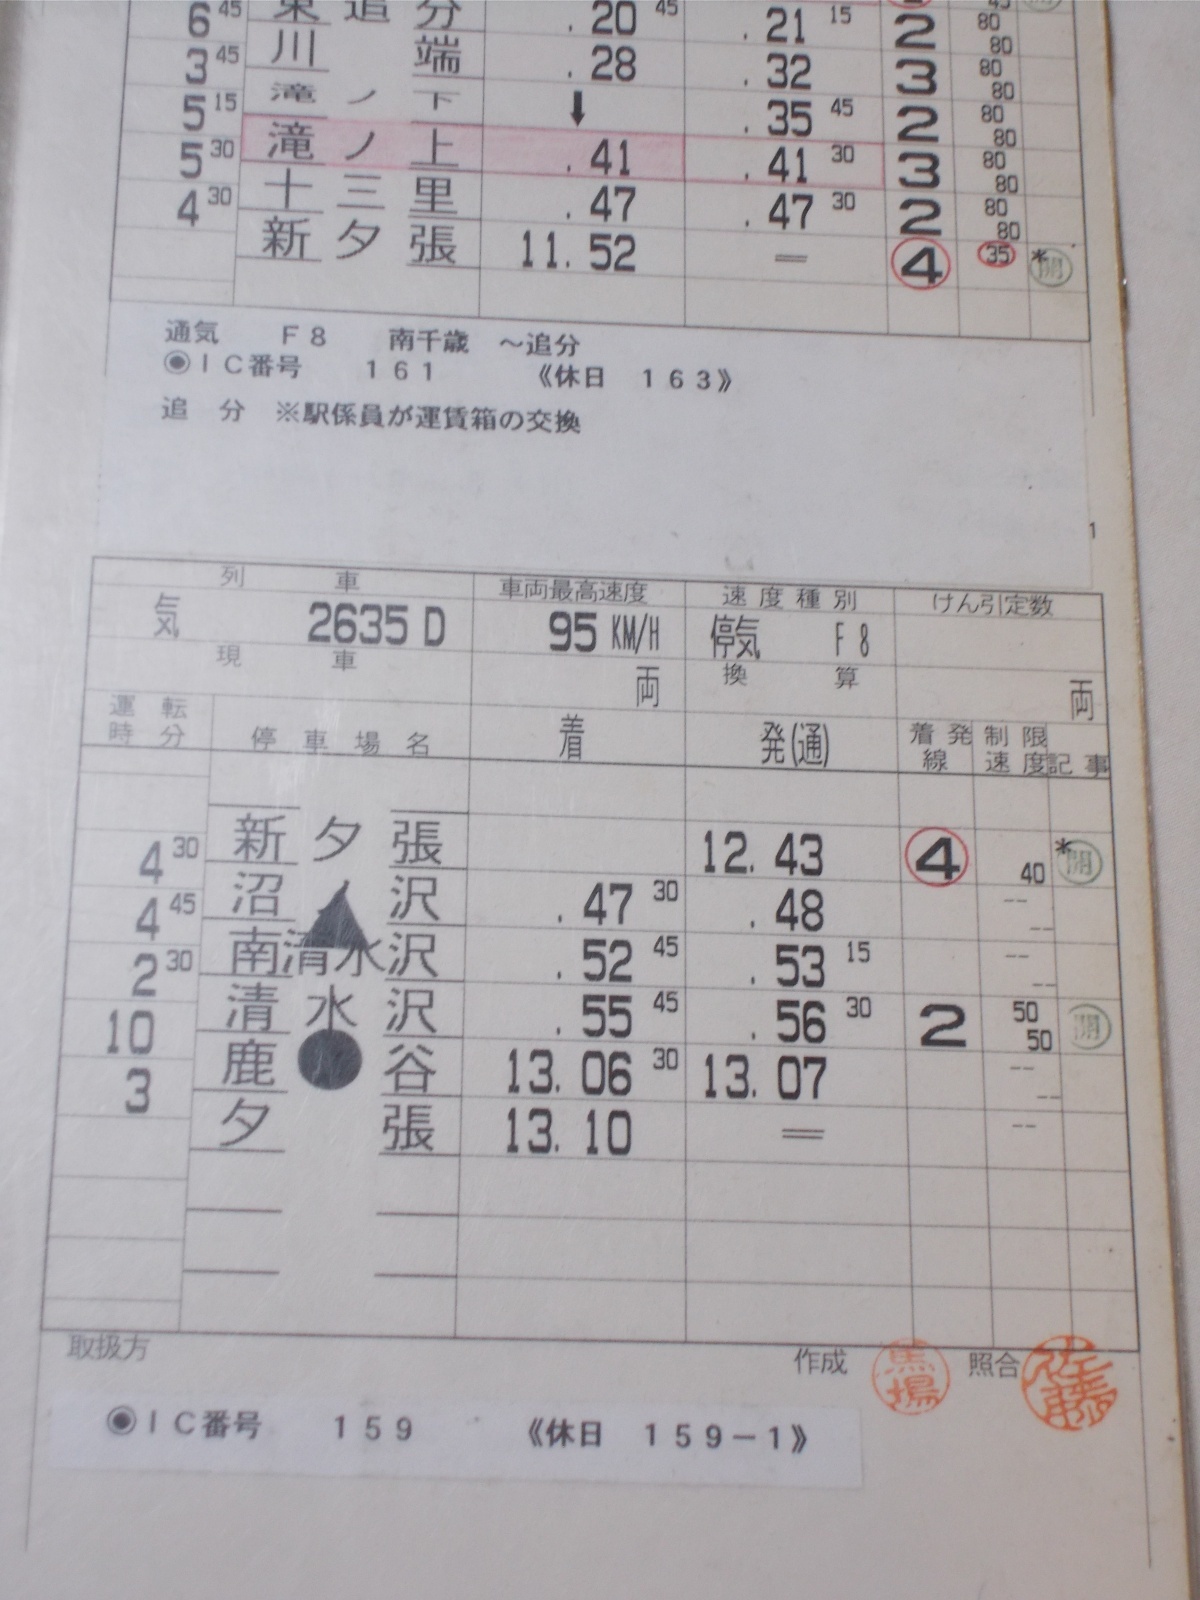 6 45 東追分 .20 45 .21 15 2 80 80
3 45 川端 .28 .32 3 80 80
5 15 滝ノ下 ↓ .35 45 2 80 80
5 30 滝ノ上 .41 .41 30 3 80 80
4 30 十三里 .47 .47 30 2 80 80
新夕張 11.52 = ④ 35 *開
通気 F8 南千歳 〜追分
◉IC番号 161 《休日 163》
追 分 ※駅係員が運賃箱の交換
1
列車 車両最高速度 速度種別 けん引定数
気 2635D 95 KM/H 停気 F8
現車 両 換算 両
運転時分 停車場名 着 発(通) 着発線 制限速度 記事
新夕張 12.43 ④ 40 *開
4 30
沼ノ沢 .47 30 .48 --
4 45 --
南清水沢 .52 45 .53 15 --
2 30 --
清水沢 .55 45 .56 30 2 50 50 開
10
鹿ノ谷 13.06 30 13.07 --
3 --
夕張 13.10 = --
取扱方 作成 馬場 照合 佐藤
◉IC番号 159 《休日 159−1》